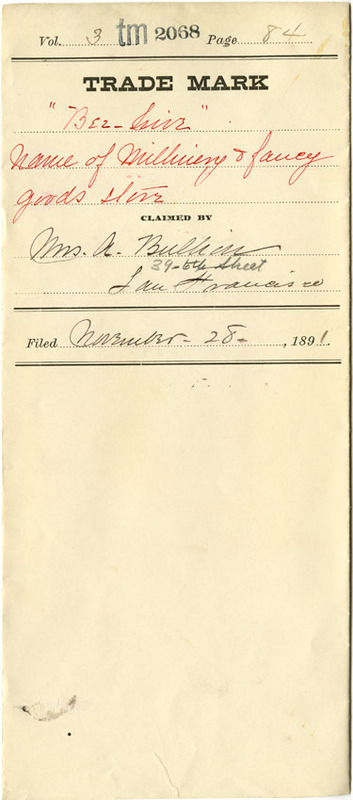 Vol. 3 tm 2068 Page 84
TRADE MARK
"Bee-hive"
Name of Millinery & fancy
goods store
CLAIMED BY
Mrs. A.
39-6th Street
San Francisco
Filed November-28-, 1891.